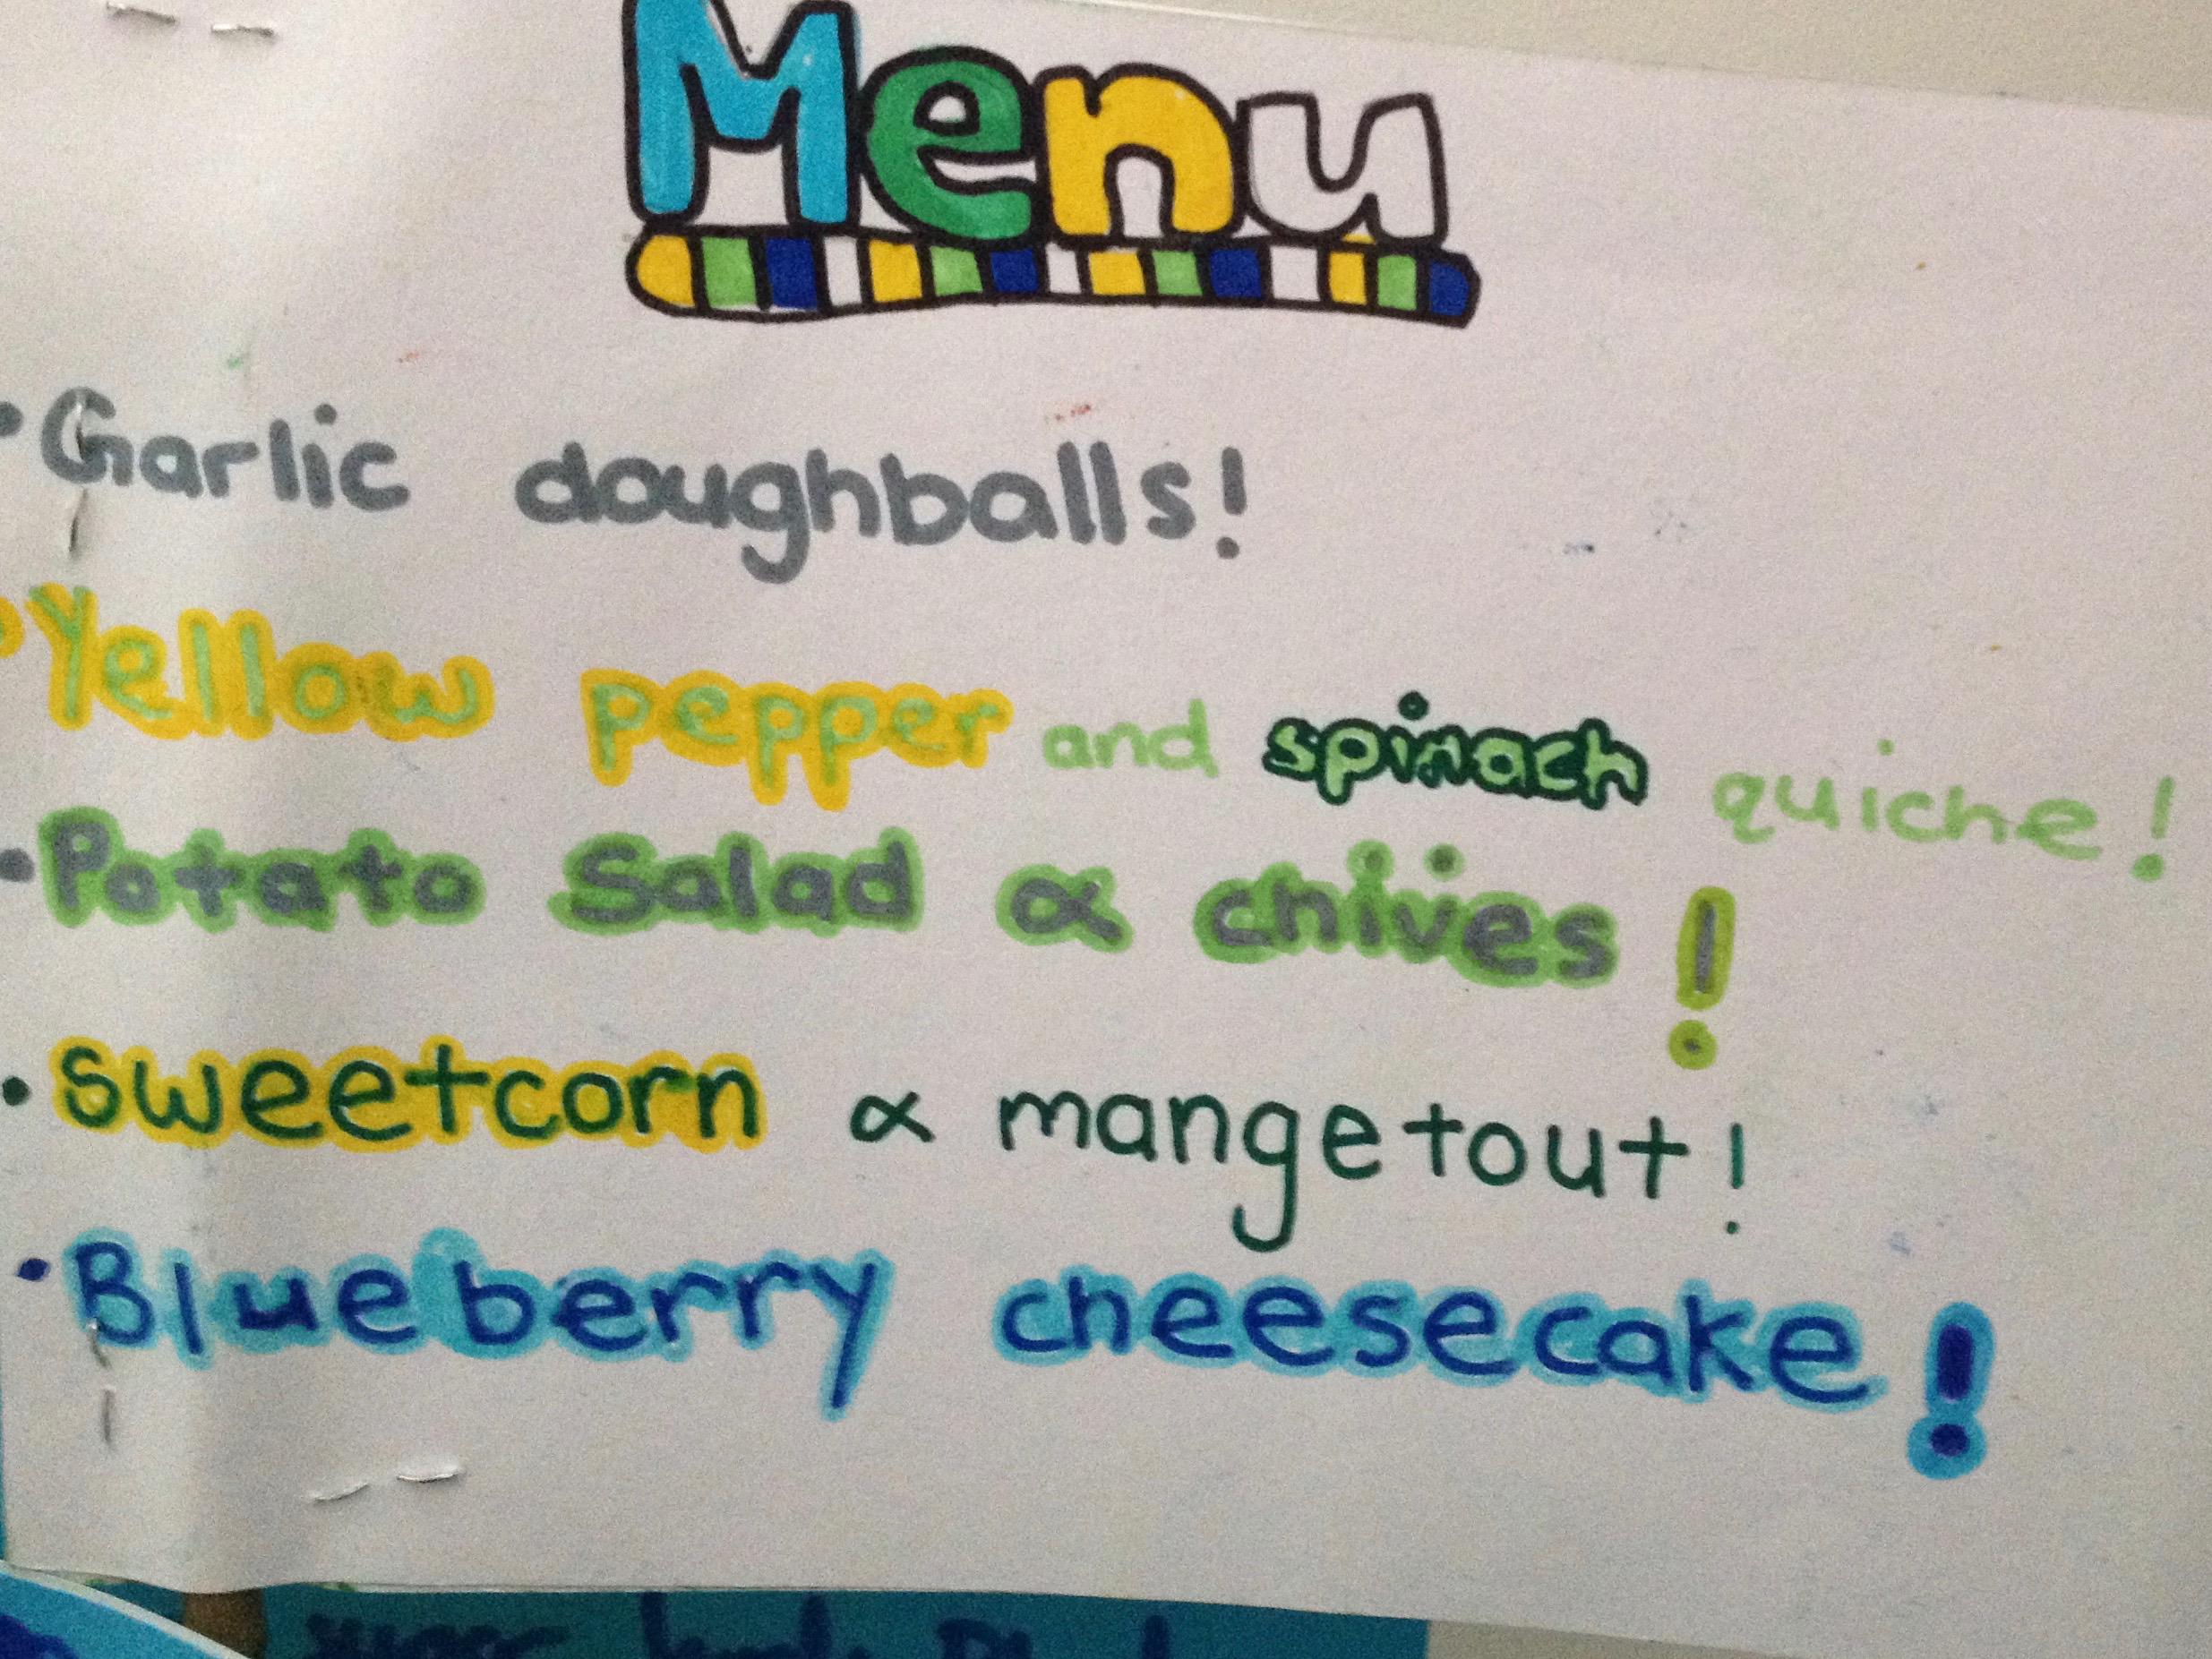 Menu
• Garlic doughballs!
• Yellow pepper and spinach quiche!
• Potato Salad & chives!
• sweetcorn & mangetout!
• Blueberry cheesecake!